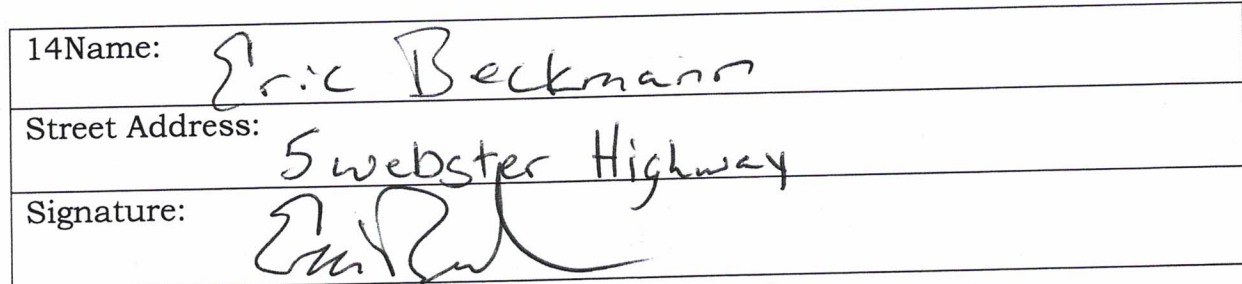 14Name: Eric Beckmann
Street Address: 5 webster Highway
Signature: